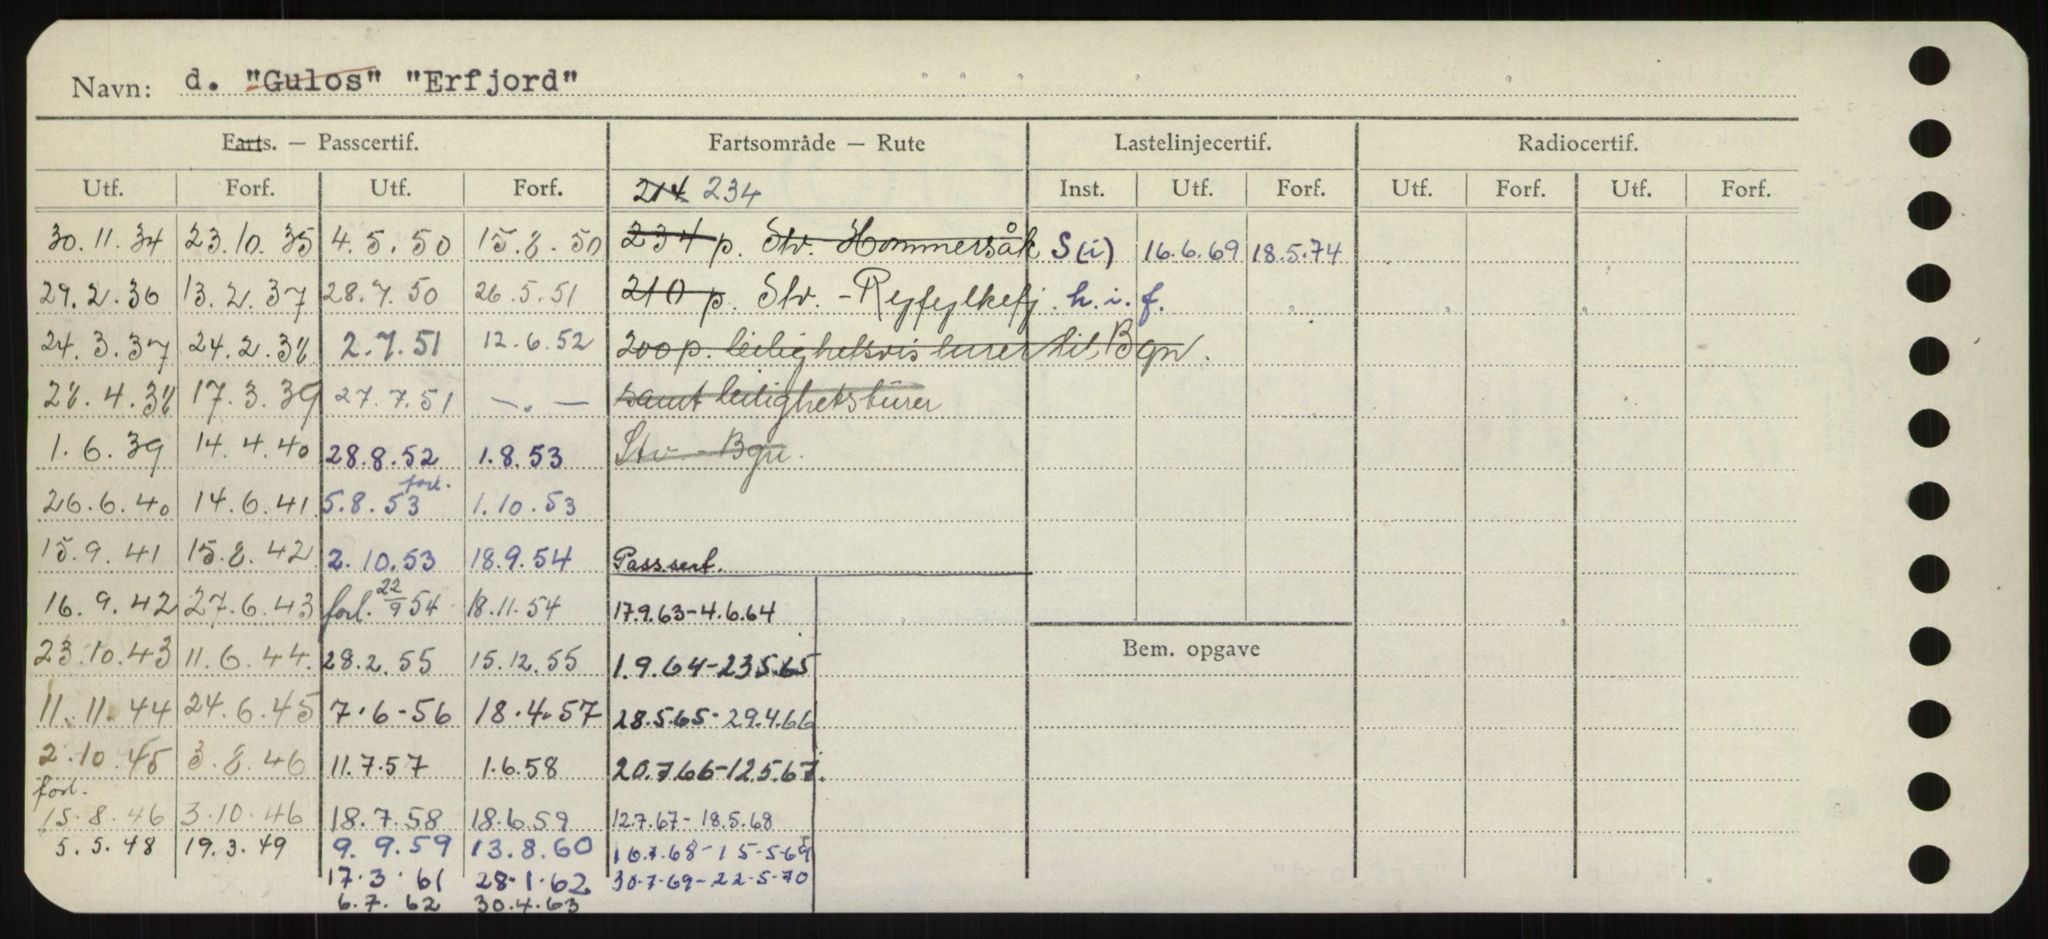 Navn: d. "Gulos" "Erfjord"
Farts. — Passcertif. Fartsområde — Rute Lastelinjecertif. Radiocertif.
Utf. Forf. Utf. Forf. 214 234 Inst. Utf. Forf. Utf. Forf. Utf. Forf.
30.11.34 23.10.35 4.5.50 15.8.50 234 p. Stv. Hommersåk S(i) 16.6.69 18.5.74
29.2.36 13.2.37 28.7.50 26.5.51 210 p. Stv. - Ryfylkefj. h.i.f.
24.3.37 24.2.38 2.7.51 12.6.52 200 p. leilighetsvis turer til Bgn.
28.4.38 17.3.39 27.7.51 —.— samt leilighetsturer
1.6.39 14.4.40 28.8.52 1.8.53 Stv - Bgn.
26.6.40 14.6.41 forl. 5.8.53 1.10.53
15.9.41 15.8.42 2.10.53 18.9.54 Passsert.
16.9.42 27.6.43 forl. 22/9 54 18.11.54 17.9.63-4.6.64
23.10.43 11.6.44. 28.2.55 15.12.55 1.9.64-23.5.65 Bem. opgave
11.11.44 24.6.45 7.6-56 18.4.57 28.5.65-29.4.66
2.10.45 3.8.46 11.7.57 1.6.58 20.7.66-12.5.67.
forl.
15.8.46 3.10.46 18.7.58 18.6.59 12.7.67-18.5.68
5.5.48 19.3.49 9.9.59 13.8.60 16.7.68-15-5-69
17.3.61 28.1.62 30.7-69-22-5-70
6.7.62 30.4.63